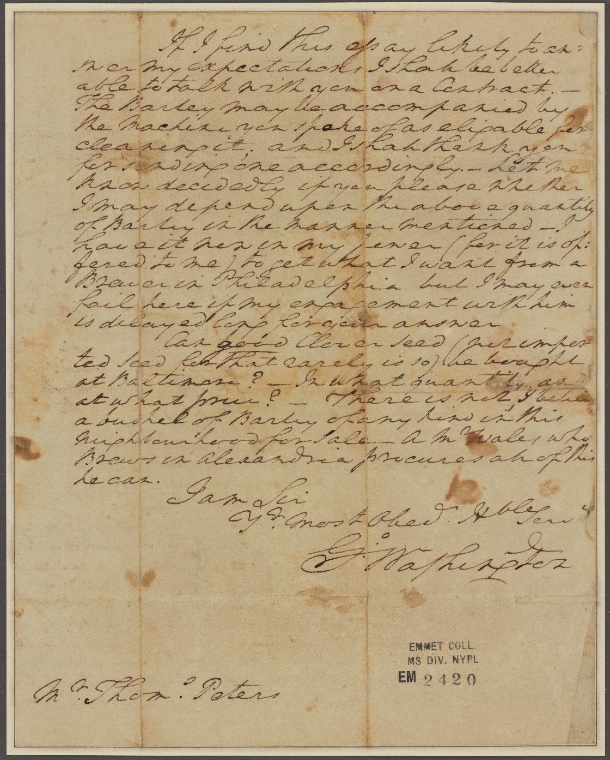 If I find this essay likely to an=
swer my expectations I shall be better
able to talk with you on a Contract.—
The Barley may be accompanied by
the Machine you spoke of as eligable for
cleaning it; and I shall thank you
for sending one accordingly.— Let me
know decidedly if you please whether
I may depend upon the above quantity
of Barley in the manner mentioned— I
have it now in my power (for it is of=
fered to me) to get what I want from a
Brewer in Philadelphia but I may even
fail here if my engagement with him
is delayed long for your answer
Can good Clover Seed (not impor
ted Seed for that rarely is so) be bought
at Baltimore?— In what quantity, and
at what price?— There is not, I believe
a bushel of Barley of any kind in this
neighbourhood for Sale— A Mr Wales who
Brews in Alexandria procures all of this
he can.
I am Sir
Yr. most Obedt. Hble Serv
Go Washington
EMMET COLL.
MS DIV. NYPL
EM 2420
Mr. Thomo. Peters